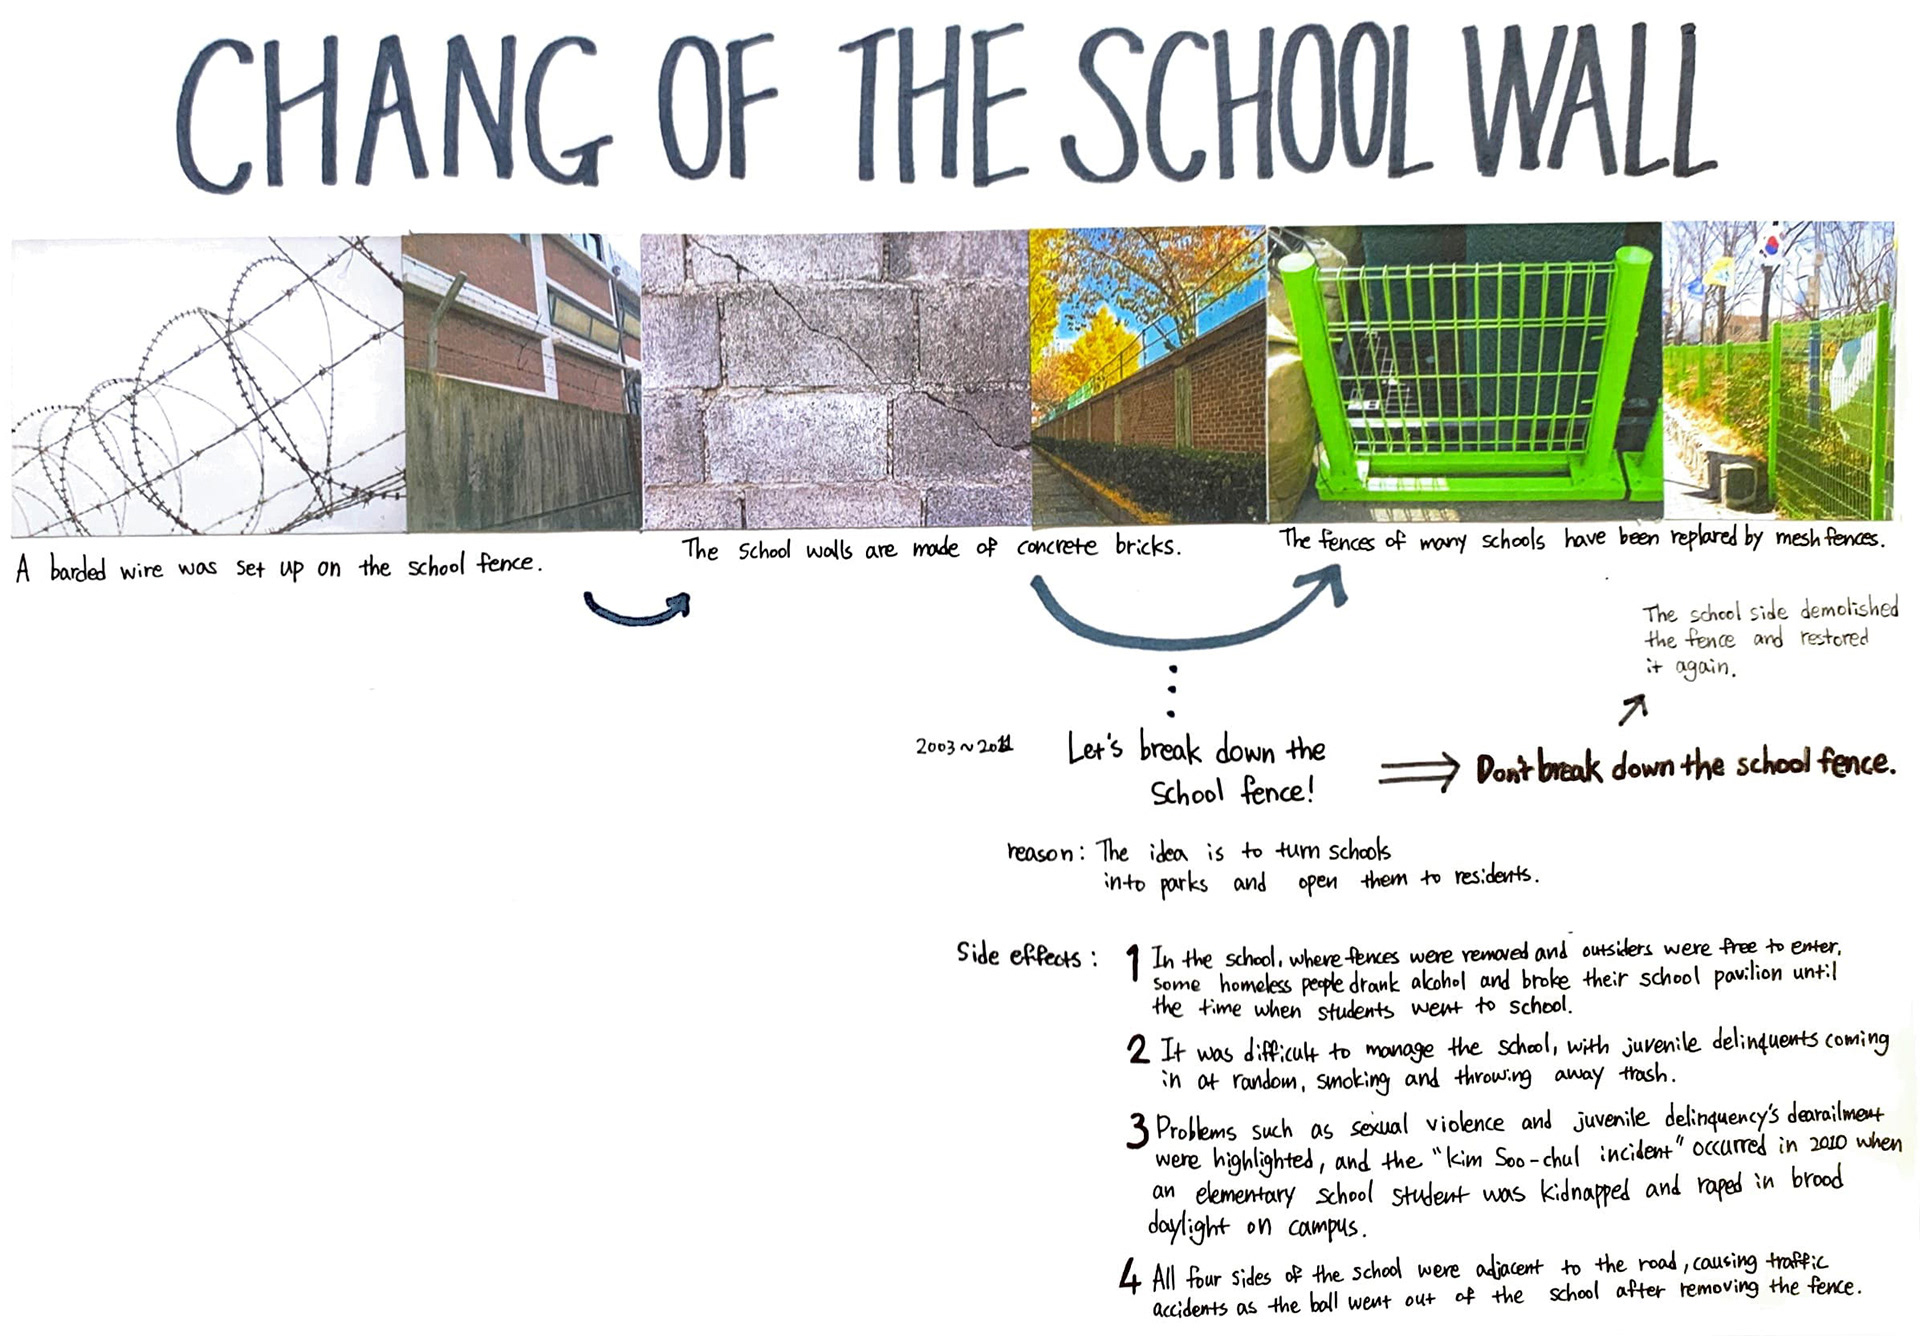 CHANG OF THE SCHOOL WALL
A barded wire was set up on the school fence.
The school walls are made of concrete bricks.
The fences of many schools have been replared by mesh fences.
The school side demolished
the fence and restored
it again.
2003~2011
Let's break down the
School fence!
Don't break down the school fence.
reason: The idea is to turn schools
into parks and open them to residents.
Side effects:
1 In the school, where fences were removed and outsiders were free to enter,
some homeless people drank alcohol and broke their school pavilion until
the time when students went to school.
2 It was difficult to manage the school, with juvenile delinquents coming
in at random, smoking and throwing away trash.
3 Problems such as sexual violence and juvenile delinquency's dearailment
were highlighted, and the "kim Soo-chul incident" occurred in 2010 when
an elementary school student was kidnapped and raped in brood
daylight on campus.
4 All four sides of the school were adjacent to the road, causing traffic
accidents as the ball went out of the school after removing the fence.